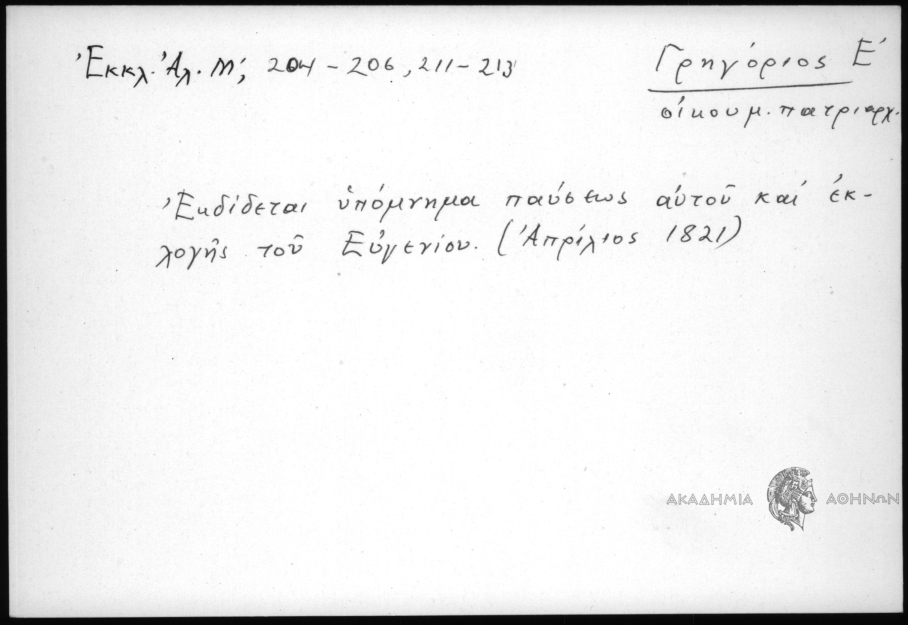 Ἐκκλ. Ἀλ. Μ', 204-206, 211-213
Γρηγόριος Ε'
οἰκουμ. πατριαρχ.
Ἐκδίδεται ὑπόμνημα παύσεως αὐτοῦ καὶ ἐκ-
λογῆς τοῦ Εὐγενίου. (Ἀπρίλιος 1821)
ΑΚΑΔΗΜΙΑ ΑΘΗΝΩΝ